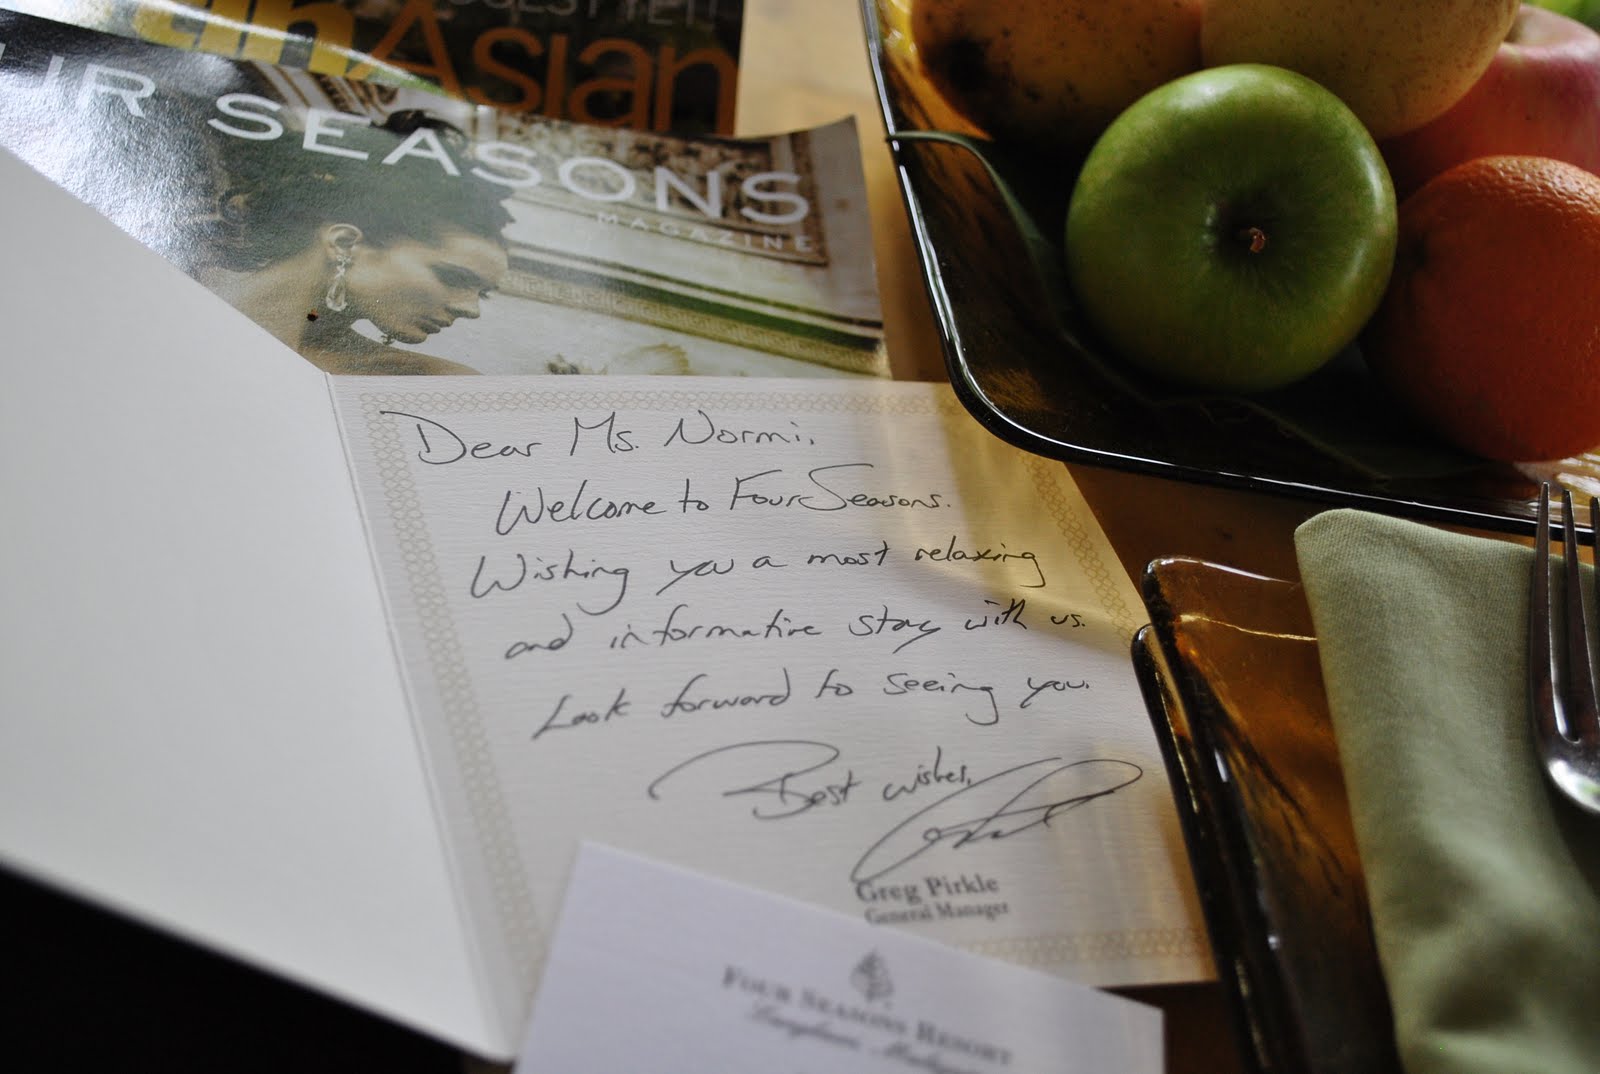 Asian
UR SEASONS
MAGAZINE
Dear Ms. Normi,
Welcome to Four Seasons.
Wishing you a most relaxing
and informative stay with us.
Look forward to seeing you.
Best wishes,
Greg Pirkle
General Manager
FOUR SEASONS RESORT